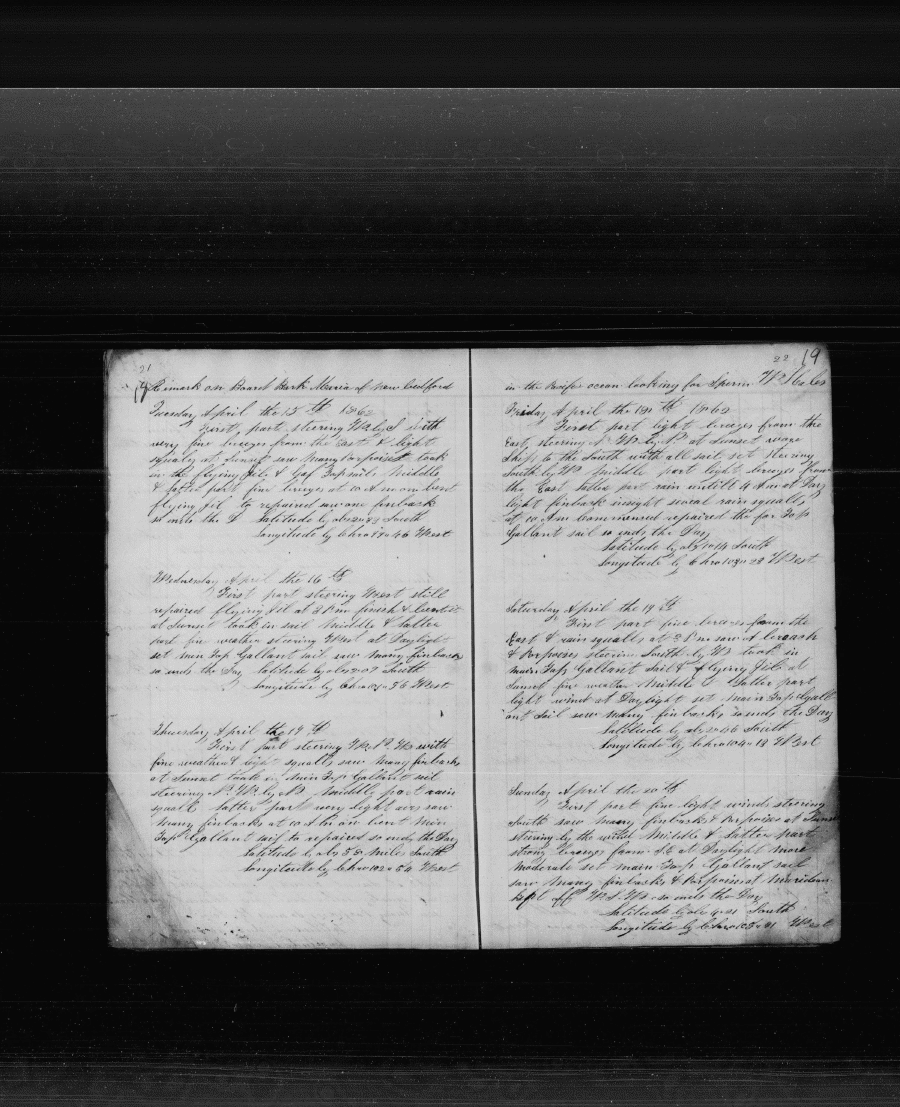 21
Remark on Board Bark Maria of New bedford
Tuesday April the 15 th 1862
First part steering W by S with
very fine breezes from the East & light
squaly at sunset saw many Porpoises took
in the flying Jib & Gaf Topsaile Middle
& latter part fine breezes at 10 A m on bent
flying Jib to repaired saw one finback
so ends the D Latitude by obs South
Longitude by Chro West
Wednesday April the 16 th
First part steering West still
repaired flying Jib at 3 P m finish & bent it
at Sunset took in sail Middle & latter
part fine weather steering West at Daylight
set main Top Gallant sail saw many finback
so ends the Day Latitude by obs South
Longitude by Chro West
Thursday April the 17 th
First part steering W N W with
fine weather & light squalls saw many finbacks
at Sunset took in Main Top Gallant sail
steering N. W. by N Middle part rain
squall latter part very light airs saw
many finbacks at 10 A m on bent Main
Top Gallant sail to repaired so ends the Day
Latitude by obs 58 miles South
Longitude by Chro West
22 19
in the Pacific ocean looking for Sperm Whales
Friday April the 18 th 1862
First part light breezes from the
East steering N W by N at Sunset wore
Ship to the South with all sail set steering
South by W Middle part light breezes from
the East latter part rain untill 4 A m at Day
light finback insight several rain squalls
at 10 A m commenced repaired the for Top
Gallant sail so ends the Day
Latitude by South
Longitude by Chro West
Saturday April the 19 th
First part fine breezes from the
East & rain squalls at 3 P m saw A breach
& Porpoises steering South by W took in
main Top Gallant Sail & flying Jib at
Sunset fine weather Middle & latter part
light wind at Daylight set Main Top Gall
ant Sail saw many finbacks so ends the Day
Latitude by South
Longitude by Chro West
Sunday April the 20 th
First part fine light winds steering
South saw many finbacks & Porpoises at Sunset
steering by the wind Middle & latter part
strong breezes from S.E at Daylight more
moderate set main Top Gallant sail
saw many finbacks & Porpoises at Meridian
kept off W.S.W so ends the Day
Latitude South
Longitude by Chro West